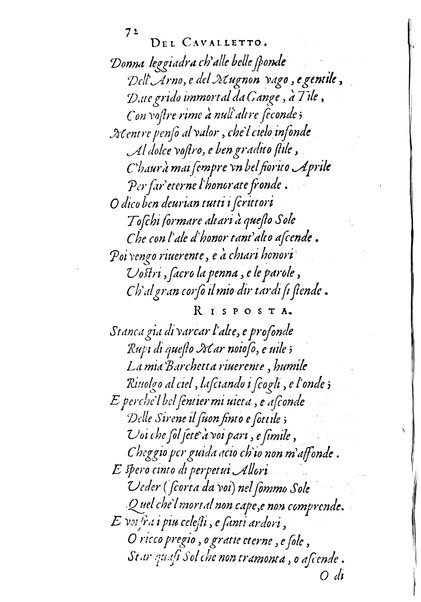 72
DEL CAVALLETTO.
Donna leggiadra ch'alle belle sponde
Dell'Arno, e del Mugnon vago, e gentile,
Date grido immortal da Gange, à Tile,
Con vostre rime à null'altre seconde;
Mentre penso al valor, che'l cielo infonde
Al dolce vostro, e ben gradito stile,
C'haurà mai sempre vn bel fiorito Aprile
Per far'eterne l'honorate fronde.
O dico ben deurian tutti i scrittori
Toschi formare altari à questo Sole
Che con l'ale d'honor tant'alto ascende.
Poi vengo riuerente, e à chiari honori
Vostri, sacro la penna, e le parole,
Ch'al gran corso il mio dir tardi si stende.
RISPOSTA.
Stanca gia di varcar l'alte, e profonde
Rupi di questo Mar noioso, e uile;
La mia Barchetta riuerente, humile
Riuolgo al ciel, lasciando i scogli, e l'onde;
E perche'l bel sentier mi uieta, e asconde
Delle Sirene il suon finto e sottile;
Voi che sol sete à voi pari, e simile,
Cheggio per guida acio ch'io non m'affonde.
E spero cinto di perpetui Allori
Veder (scorta da voi) nel sommo Sole
Quel che'l mortal non cape, e non comprende.
E fra i piu celesti, e santi ardori,
O ricco pregio, o gratie eterne, e sole,
Star quasi Sol che non tramonta, o ascende.
O di